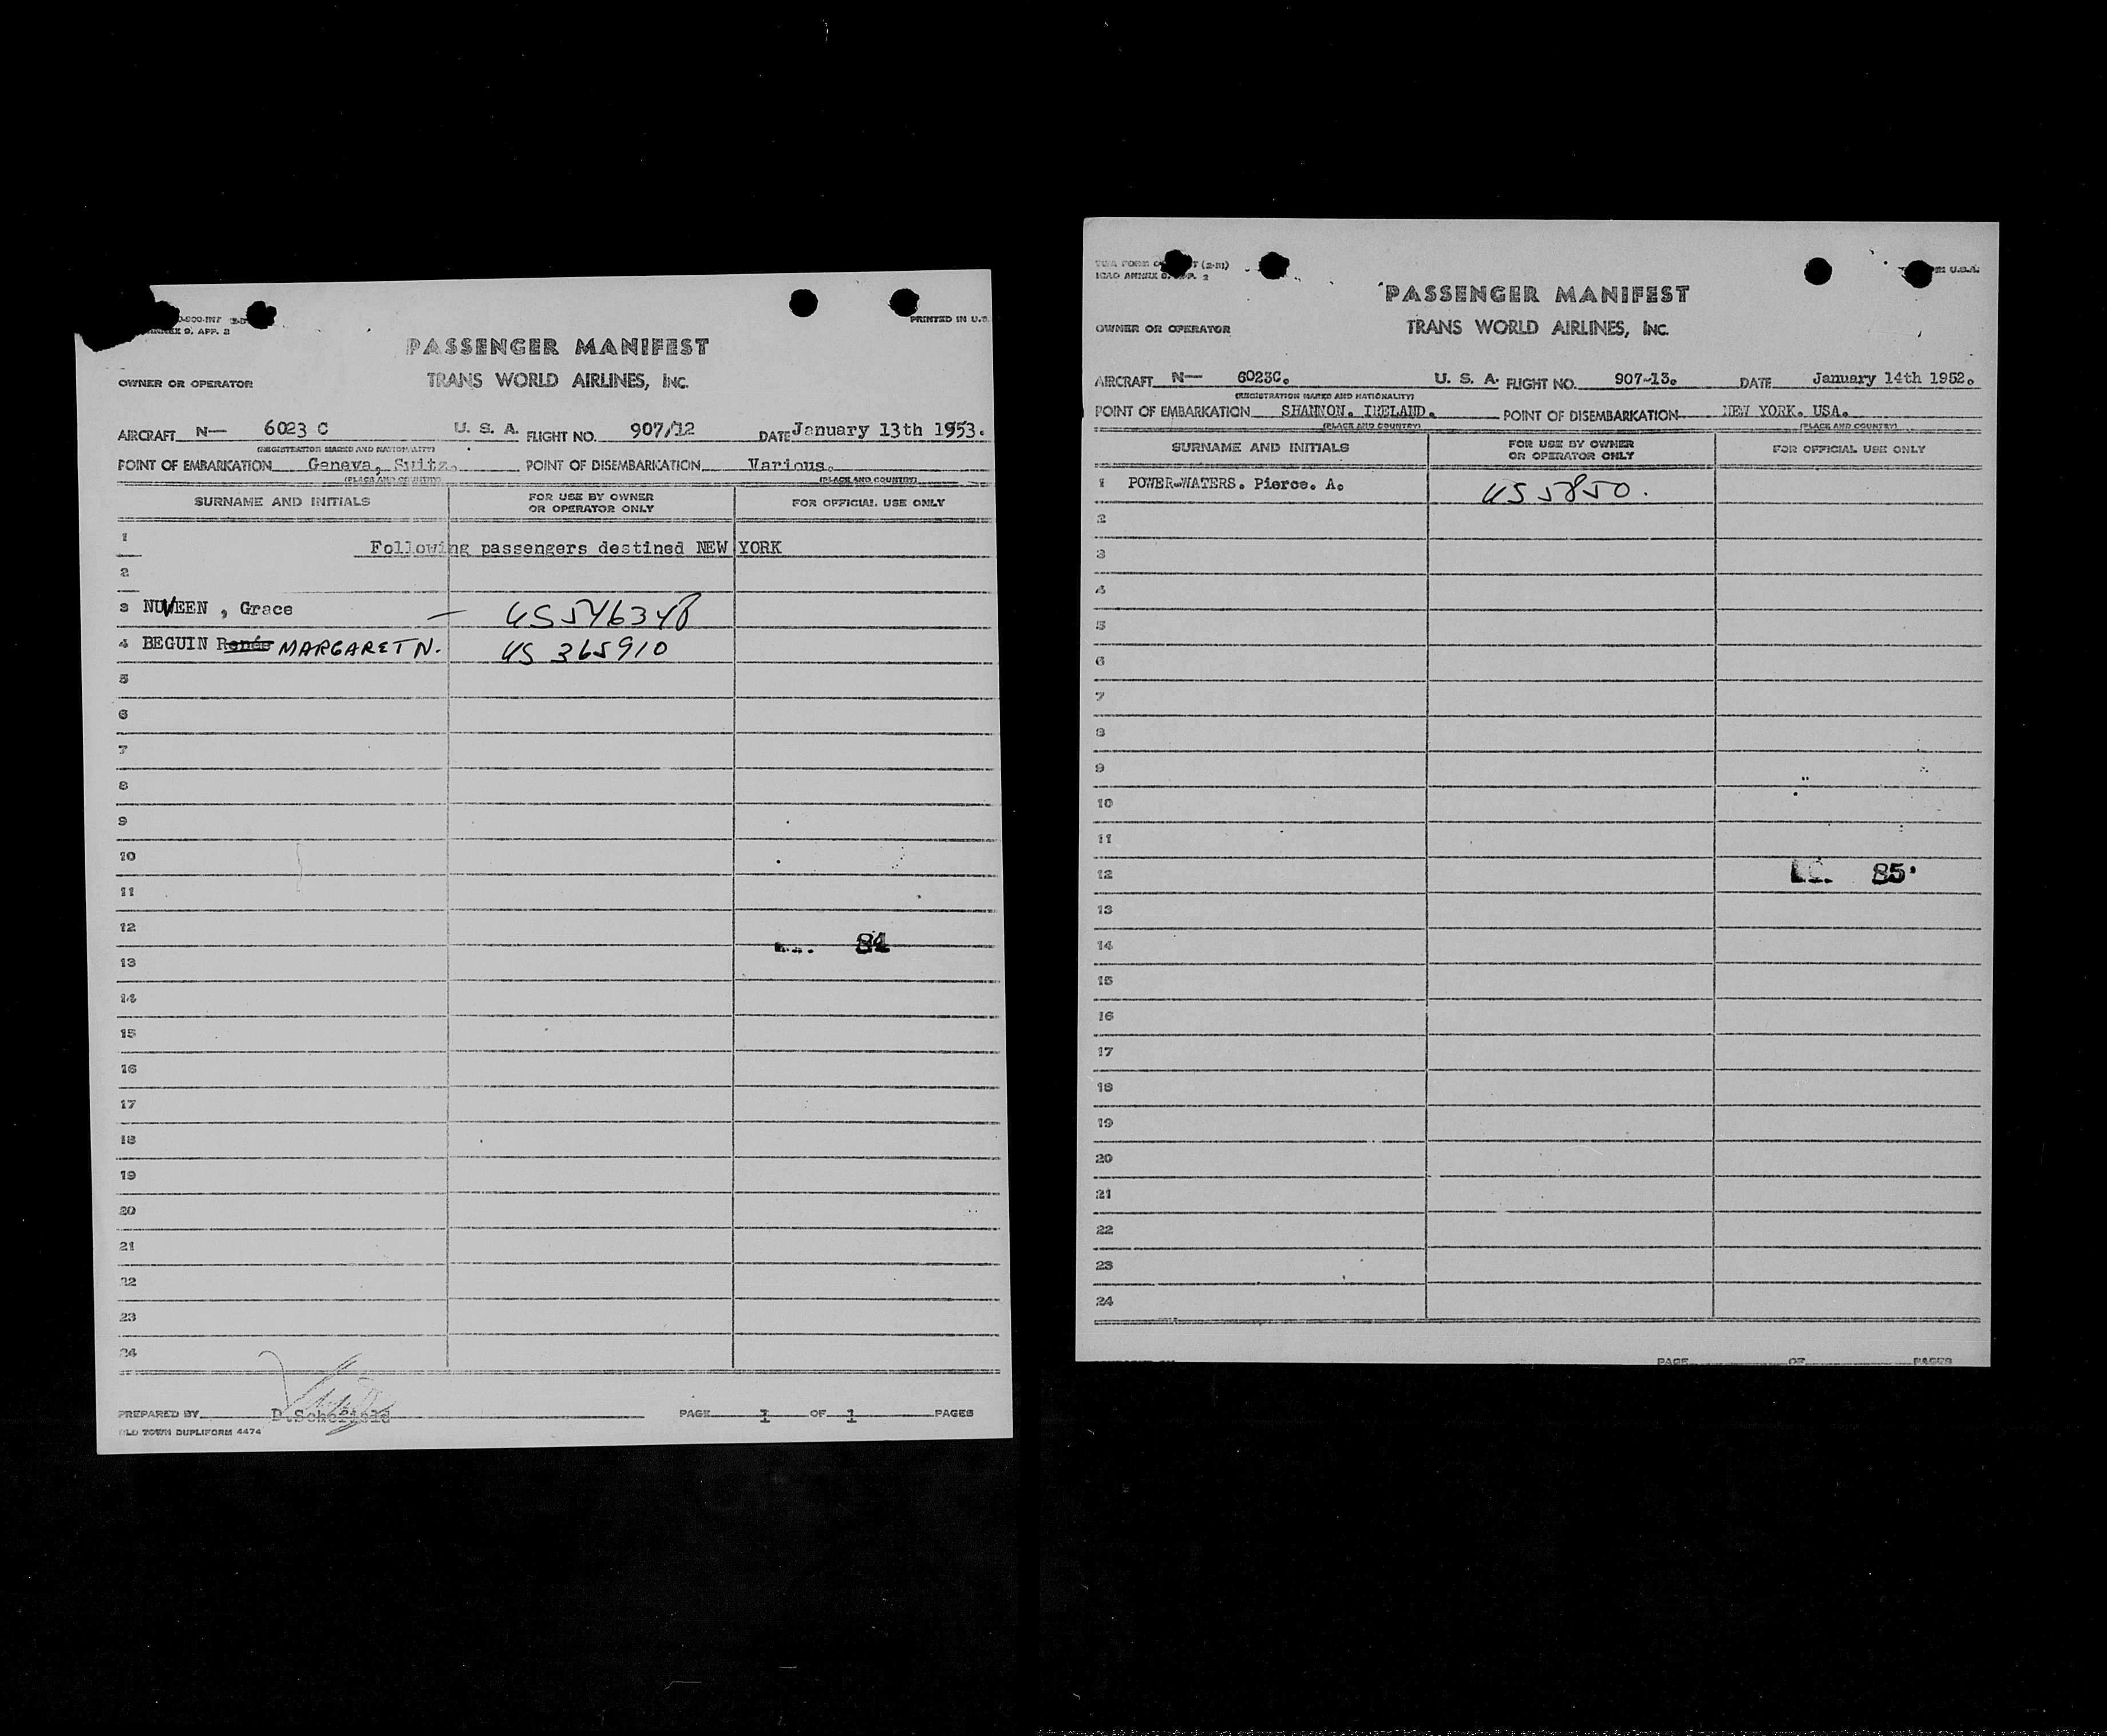 ANNEX 9, APP. 2
PRINTED IN U.S.
PASSENGER MANIFEST
OWNER OR OPERATOR TRANS WORLD AIRLINES, INC.
AIRCRAFT N— 6023 C U. S. A. FLIGHT NO. 907/12 DATE January 13th 1953.
(REGISTRATION MARKS AND NATIONALITY)
POINT OF EMBARKATION Geneva, Switz. POINT OF DISEMBARKATION Various.
(PLACE AND COUNTRY) (PLACE AND COUNTRY)
SURNAME AND INITIALS FOR USE BY OWNER OR OPERATOR ONLY FOR OFFICIAL USE ONLY
1 Following passengers destined NEW YORK
2
3 NUVEEN , Grace — US 546348
4 BEGUIN Renée MARGARET N. US 365910
5
6
7
8
9
10
11
12
84
13
14
15
16
17
18
19
20
21
22
23
24
PREPARED BY D.Schofield PAGE 1 OF 1 PAGES
OLD TOWN DUPLIFORM 4474
TWA FORM
ICAO ANNEX 9, APP. 2
U.S.A.
PASSENGER MANIFEST
OWNER OR OPERATOR TRANS WORLD AIRLINES, INC.
AIRCRAFT N— 6023C. U. S. A. FLIGHT NO. 907-13. DATE January 14th 1952.
(REGISTRATION MARKS AND NATIONALITY)
POINT OF EMBARKATION SHANNON. IRELAND. POINT OF DISEMBARKATION NEW YORK. USA.
(PLACE AND COUNTRY) (PLACE AND COUNTRY)
SURNAME AND INITIALS FOR USE BY OWNER OR OPERATOR ONLY FOR OFFICIAL USE ONLY
1 POWER-WATERS. Pierce. A. US 5850.
2
3
4
5
6
7
8
9
10
11
12 85
13
14
15
16
17
18
19
20
21
22
23
24
PAGE OF PAGES